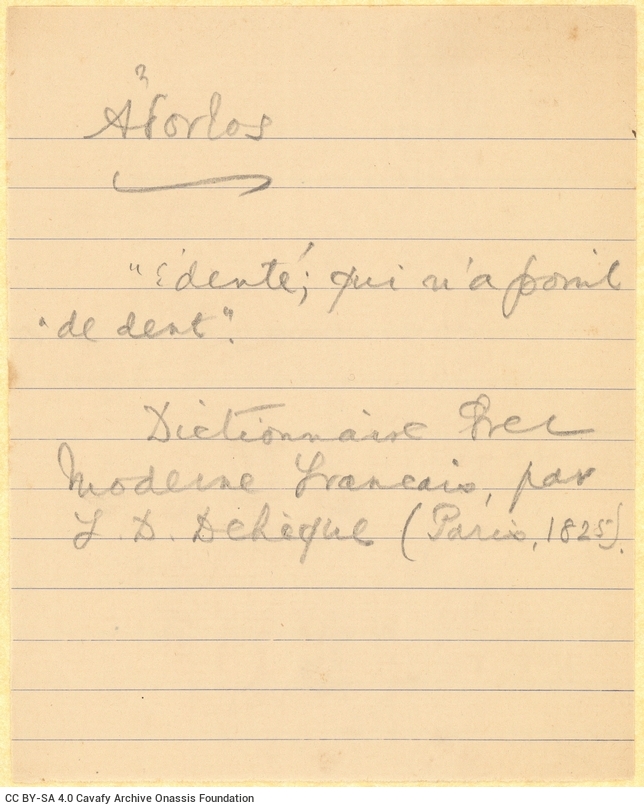 Ἄδοντος
"Édenté; qui n'a point
"de dent".
Dictionnaire Grec
Moderne Français, par
F. D. Dehèque (Paris, 1825).
CC BY-SA 4.0 Cavafy Archive Onassis Foundation